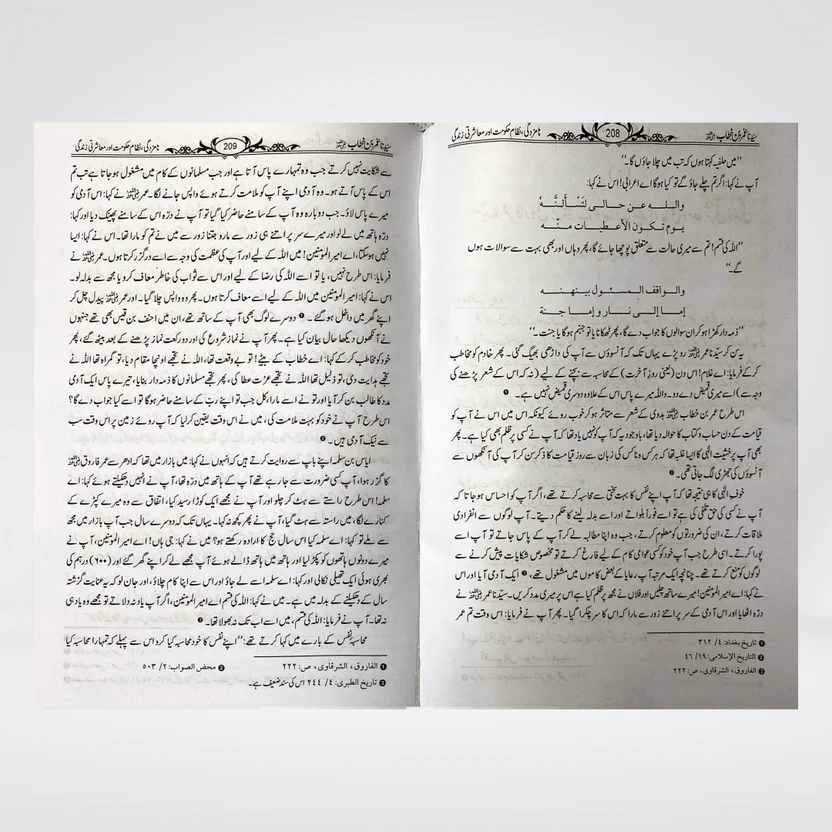 سیّدنا عمر بن خطاب رضی اللہ عنہ 208 نامزدگی، نظام حکومت اور معاشرتی زندگی
”میں حلفیہ کہتا ہوں کہ تب میں چلا جاؤں گا۔“
آپ نے کہا: اگر تم چلے جاؤ گے تو کیا ہوگا اے اعرابی! اس نے کہا:
واللہ عن حالی لتسألنہ
یوم تکون الأعطیات منہ
”اللہ کی قسم! تم سے میری حالت سے متعلق پوچھا جائے گا، پھر وہاں اور بھی بہت سے سوالات ہوں
گے۔“
والواقف المسئول بینہنہ
إما إلی نار و إما جنۃ
”ذمہ دار کھڑا ہو کر ان سوالوں کا جواب دے گا، پھر ٹھکانا یا تو جہنم ہوگا یا جنت۔“
یہ سن کر سیّدنا عمر رضی اللہ عنہ رو پڑے یہاں تک کہ آنسوؤں سے آپ کی داڑھی بھیگ گئی۔ پھر خادم کو مخاطب
کر کے فرمایا: اے غلام! اس دن (یعنی روز آخرت) کے محاسبہ سے بچنے کے لیے (نہ کہ اس کے شعر پڑھنے کی
وجہ سے) اسے میری قمیض دے دو۔ واللہ میرے پاس اس کے علاوہ دوسری قمیض نہیں ہے۔ ❶
اس طرح عمر بن خطاب رضی اللہ عنہ بدوی کے شعر سے متاثر ہو کر خوب روئے کیونکہ اس میں اس نے آپ کو
قیامت کے دن حساب و کتاب کا حوالہ دیا تھا، باوجودیکہ آپ کو نہیں یاد تھا کہ آپ نے کسی پر ظلم بھی کیا ہے۔ پھر
بھی آپ پر خشیت الٰہی کا ایسا غلبہ تھا کہ ہر کس و ناکس کی زبان سے روز قیامت کا ذکر سن کر آپ کی آنکھوں سے
آنسوؤں کی جھڑی لگ جاتی تھی۔ ❷
خوف الٰہی کا ہی نتیجہ تھا کہ آپ اپنے نفس کا بہت سختی سے محاسبہ کرتے تھے، اگر آپ کو احساس ہو جاتا کہ
آپ نے کسی کی حق تلفی کی ہے تو اسے فوراً بلواتے اور اسے بدلہ لینے کا حکم دیتے۔ آپ لوگوں سے انفرادی
ملاقات کرتے، ان کی ضرورتوں کو معلوم کرتے، جب وہ اپنا مطالبہ لے کر آپ کے پاس جاتے تو آپ اسے
پورا کرتے۔ اسی طرح جب آپ خود کو کسی عوامی کام کے لیے فارغ کرتے تو مخصوص شکایات پیش کرنے سے
لوگوں کو منع کرتے تھے۔ چنانچہ ایک مرتبہ آپ رعایا کے بعض کاموں میں مشغول تھے، ❸ ایک آدمی آیا اور اس
نے کہا: اے امیر المومنین! میرے ساتھ چلیں اور فلاں نے مجھ پر ظلم کیا ہے اس پر میری مدد کریں۔ سیّدنا عمر رضی اللہ عنہ نے
درّہ اٹھایا اور اس آدمی کے سر پر اتنے زور سے مارا کہ اس کا سر چکرا گیا۔ پھر آپ نے فرمایا: اس وقت تم عمر
❶ تاریخ بغداد: ٤/ ٣١٢
❷ التاریخ الإسلامی: ١٩/ ٤٦
❸ الفاروق، الشرقاوی، ص: ٢٢٢
سیّدنا عمر بن خطاب رضی اللہ عنہ 209 نامزدگی، نظام حکومت اور معاشرتی زندگی
سے شکایت نہیں کرتے جب وہ تمہارے پاس آتا ہے اور جب مسلمانوں کے کام میں مشغول ہو جاتا ہے تب تم
اس کے پاس آتے ہو۔ وہ آدمی اپنے آپ کو ملامت کرتے ہوئے واپس جانے لگا۔ عمر رضی اللہ عنہ نے کہا: اس آدمی کو
میرے پاس لاؤ۔ جب دوبارہ وہ آپ کے سامنے حاضر کیا گیا تو آپ نے درّہ اس کے سامنے پھینک دیا اور کہا:
درّہ ہاتھ میں لے لو اور میرے سر پر اتنے ہی زور سے مارو جتنا زور سے میں نے تم کو مارا تھا۔ اس نے کہا: ایسا
نہیں ہوسکتا، اے امیر المومنین! میں اللہ کے لیے اور آپ کی عظمت کی وجہ سے اسے درگزر کرتا ہوں۔ عمر رضی اللہ عنہ نے
فرمایا: اس طرح نہیں، یا تو اسے اللہ کی رضا کے لیے اور اس سے ثواب کی خاطر معاف کرو یا مجھ سے بدلہ لو۔
اس نے کہا: امیر المومنین میں اللہ کے لیے اسے معاف کرتا ہوں۔ پھر وہ واپس چلا گیا۔ اور عمر رضی اللہ عنہ پیدل چل کر
اپنے گھر میں داخل ہوگئے۔ ❶ دوسرے لوگ بھی آپ کے ساتھ تھے، ان میں احنف بن قیس بھی تھے جنہوں
نے آنکھوں دیکھا حال بیان کیا ہے۔ پھر آپ نے نماز شروع کی اور دو رکعت نماز پڑھنے کے بعد بیٹھ گئے، پھر
خود کو مخاطب کر کے کہا: اے خطاب کے بیٹے! تو بے وقعت تھا، اللہ نے تجھے اونچا مقام دیا، تو گمراہ تھا اللہ نے
تجھے ہدایت دی، تو ذلیل تھا اللہ نے تجھے عزت عطا کی، پھر تجھے مسلمانوں کا ذمہ دار بنایا، تیرے پاس ایک آدمی
مدد کا طالب بن کر آیا اور تو نے اسے مارا، کل جب تو اپنے رب کے سامنے حاضر ہوگا تو اسے کیا جواب دے گا؟
اس طرح آپ نے خود کو بہت ملامت کی، میں نے اس وقت یقین کر لیا کہ آپ روئے زمین پر اس وقت سب
سے نیک آدمی ہیں۔ ❷
ایاس بن سلمہ اپنے باپ سے روایت کرتے ہیں کہ انہوں نے کہا: میں بازار میں تھا کہ ادھر سے عمر فاروق رضی اللہ عنہ
کا گزر ہوا، آپ کسی ضرورت سے جا رہے تھے آپ کے ہاتھ میں درّہ تھا، آپ نے انہیں دھکیلتے ہوئے کہا: اے
سلمہ! اس طرح راستے سے ہٹ کر چلو اور آپ نے مجھے ایک کوڑا رسید کیا، اتفاق سے وہ میرے کپڑے کے
کنارے لگا، میں راستہ سے ہٹ گیا، آپ نے پھر کچھ نہ کہا۔ یہاں تک کہ دوسرے سال جب آپ بازار میں مجھ
سے ملے تو کہا: اے سلمہ کیا اس سال حج کا ارادہ رکھتے ہو؟ میں نے کہا: جی ہاں! اے امیر المومنین، آپ نے
میرے دونوں ہاتھوں کو پکڑ لیا اور ہاتھ میں ہاتھ ڈالے ہوئے آپ مجھے لے کر اپنے گھر گئے اور (٦٠٠) درہم کی
بھری ہوئی ایک تھیلی نکالی اور کہا: اے سلمہ اسے لے جاؤ اور اس سے اپنا کام چلاؤ، اور جان لو کہ یہ عنایت گزشتہ
سال کے دھکیلنے کے بدلہ میں ہے۔ میں نے کہا: اللہ کی قسم اے امیر المومنین، اگر آپ یاد نہ دلاتے تو مجھے وہ یاد ہی
نہ تھا۔ آپ نے فرمایا: اللہ کی قسم، میں اسے اب تک نہ بھولا تھا۔ ❸
محاسبہ نفس کے بارے میں کہا کرتے تھے: ”اپنے نفس کا خود محاسبہ کیا کرو اس سے پہلے کہ تمہارا محاسبہ کیا
❶ الفاروق، الشرقاوی، ص: ٢٢٢ ❷ محض الصواب: ٢/ ٥٠٣
❸ تاریخ الطبری: ٤/ ٢٤٤ اس کی سند ضعیف ہے۔